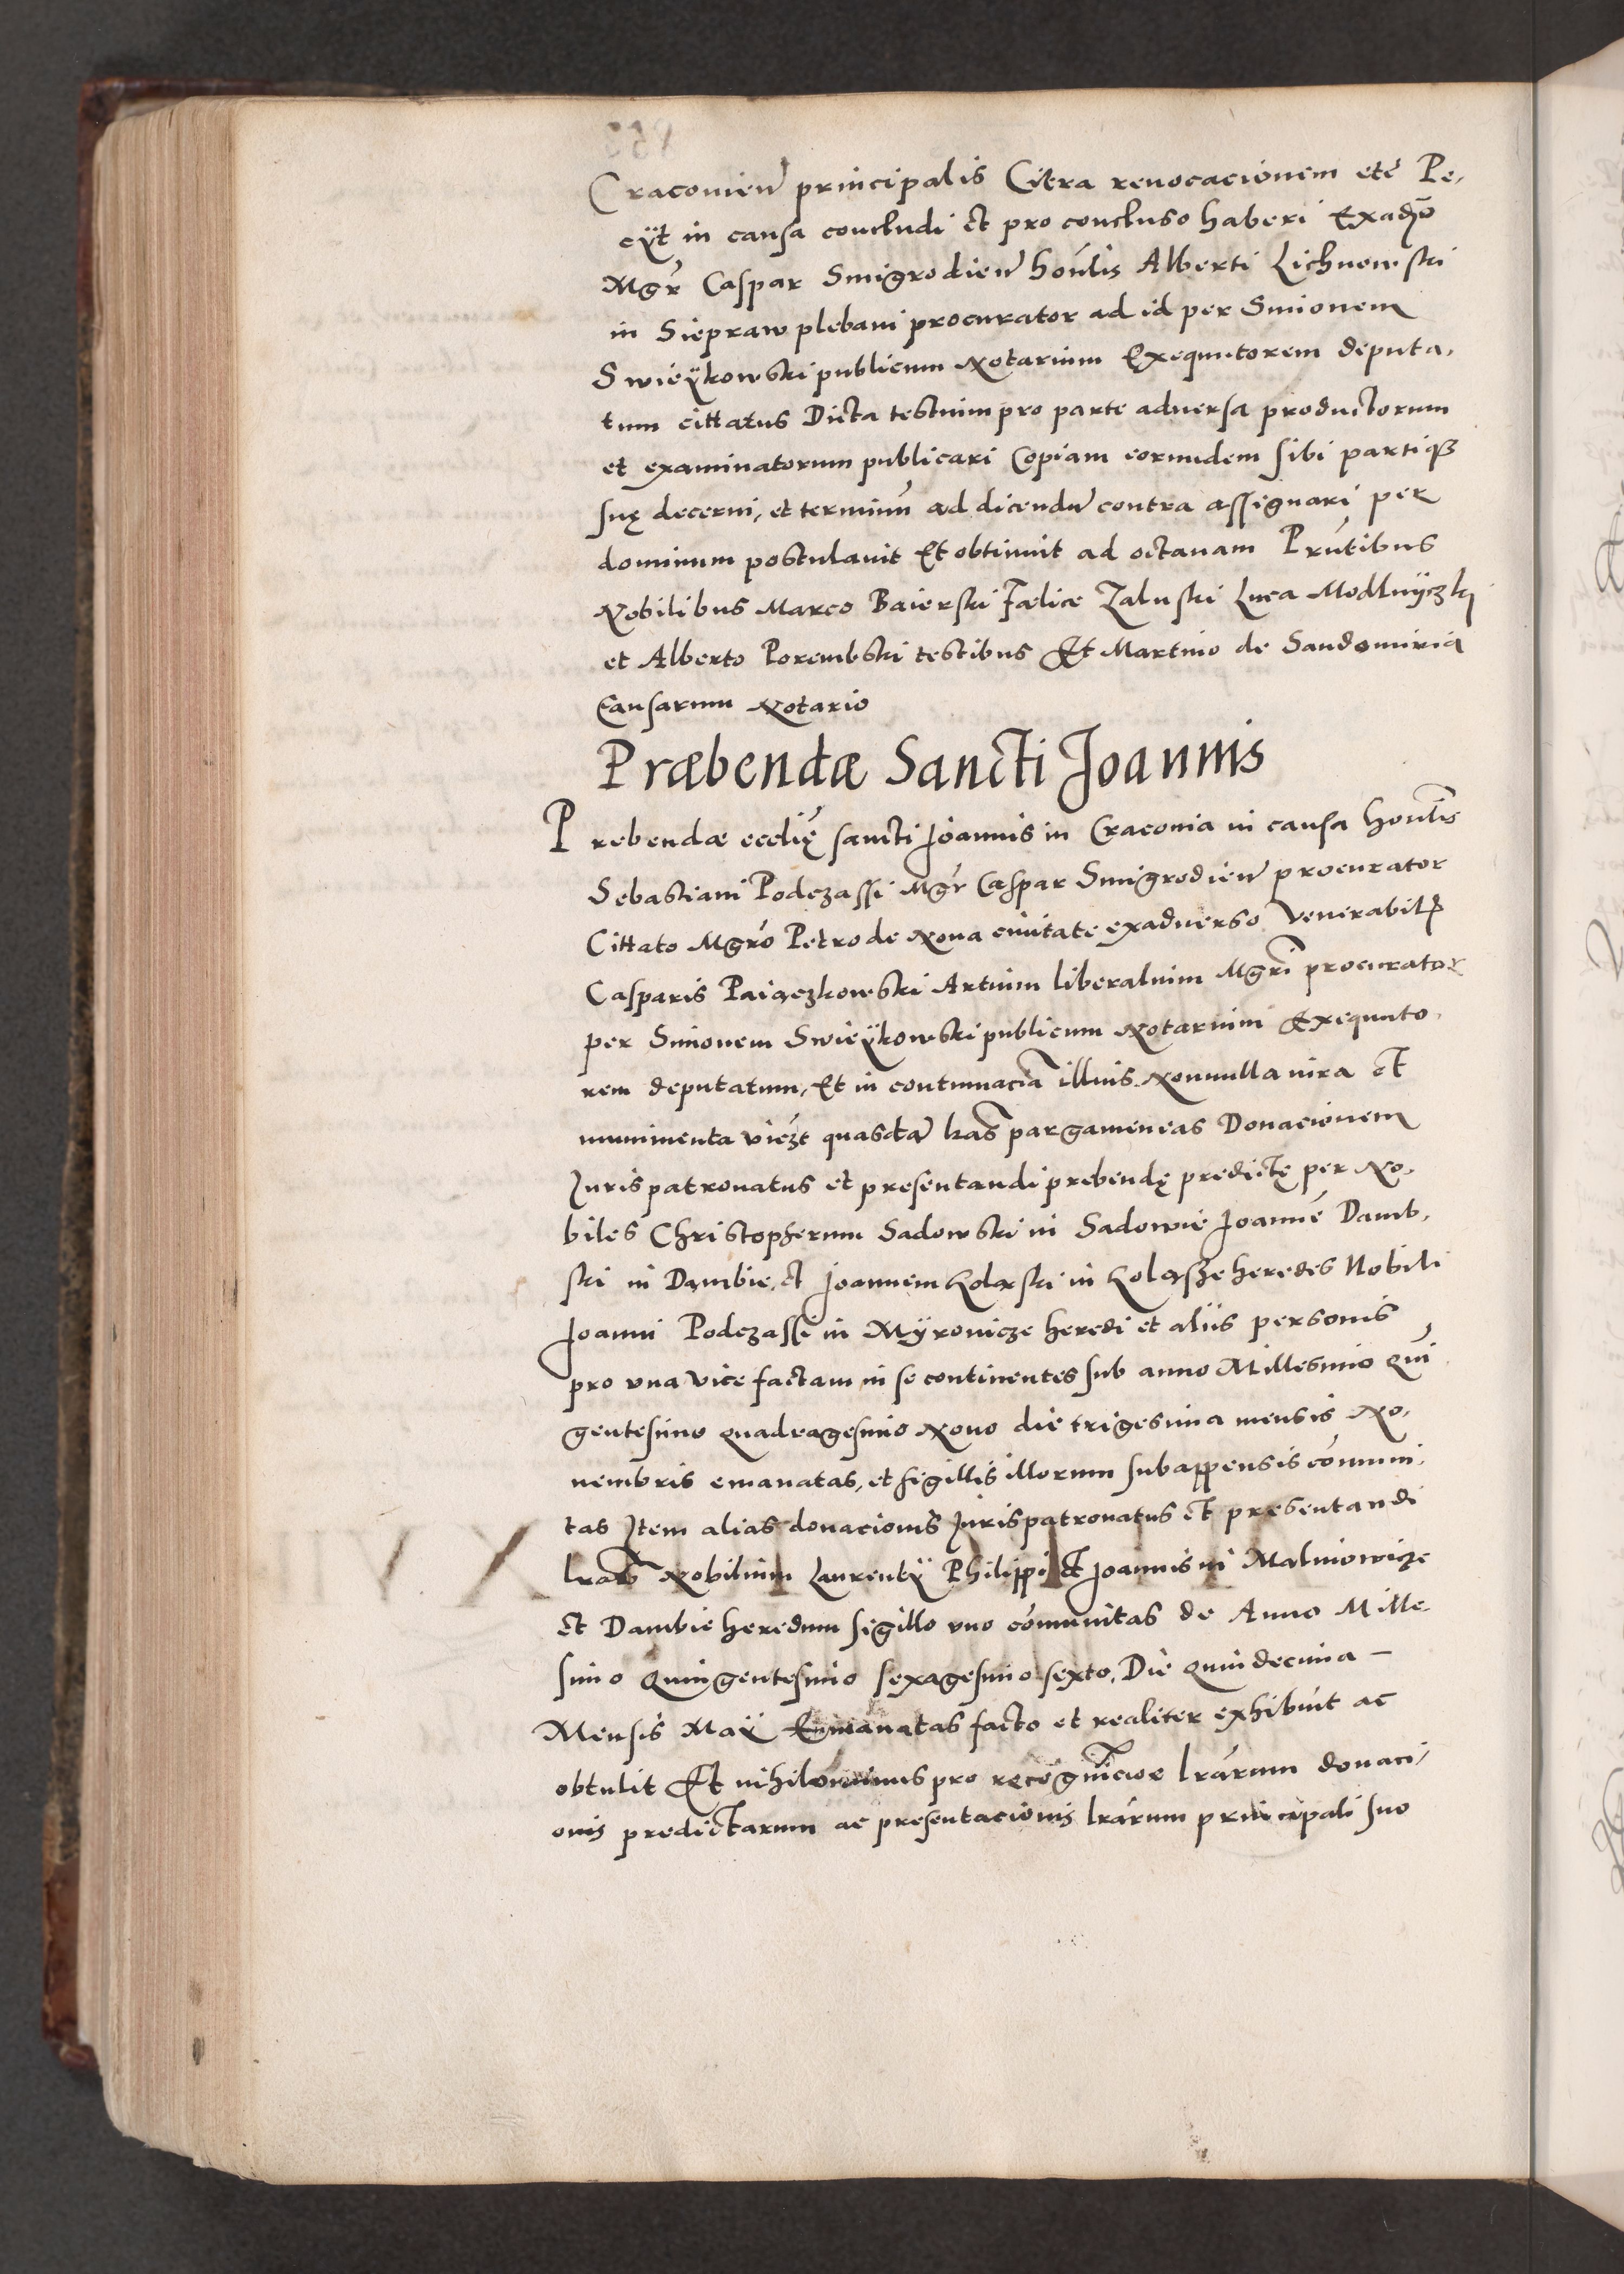 Cracovien̄ principalis Citra revocacionem etc̄ Pe,
cÿt in causa concludi et pro concluso haberi Exadṽo
Mgr̄ Caspar Smigrodien̄ hon̄lis Alberti Lichnowski
in Siepraw plebani procurator ad id per Simonem
Swieÿkowski publicum Notarium Exequutorem deputa,
tum cittatus Dicta testium pro parte adversa productorum
et examinatorum publicari Copiam eorumdem sibi partiqȝ
suę decerni, et terminū ad dicendū contra assignari per
dominum postulavit Et obtinuit ad octavam Pr̄ntibus
Nobilibus Marco Baierski Fælice Zaluski Luca Modlniÿczki
et Alberto Porembski testibus Et Martino de Sandomiria
Causarum Notario
Præbendæ Sancti Joannis
Prebendæ eccl̄ię sancti Joannis in Cracovia in causa hon̄lis
Sebastiani Podczassi Mgr̄ Caspar Smigrodien̄ procurator
Cittato Mgr̄o Petro de Nova civitate exadverso Venerabilꝭ
Casparis Paiączkowski Artium liberalium Mgr̄i procurator
per Simonem Swieÿkowski publicum Notarium Exequuto,
rem deputatum, Et in contumaciā illius Nonnulla iura et
munimenta vicȝt quasdā l̄ras pargameneas Donacionem
Juris patronatus et presentandi prebendę predictę per No,
biles Christopherum Sadowski in Sadowie Joannē Damb,
ski in Dambie, et Joannem Kolęski in heredes Nobili
Joanni Podczassi in Mÿronicze heredi et aliis personis
pro una vice factam in se continentes sub anno Millesimo Quī,
gentesimo quadragesimo Nono die trigesima mensis No,
vembris emanatas, et sigillis illorum subappensis cōmuni,
tas Item alias donacionis Jurispatronatus et presentandi
l̄ras Nobilium Laurentÿ Philippi et Joannis in Malinowicze
et Dambie heredum sigillo uno cōmunitas de Anno Mille,
simo Quingentesimo sexagesimo sexto, Die Quindecima –
Mensis Maÿ Emanatas facto et realiter exhibuit ac
obtulit Et nihilominus pro recognic̄ioe l̄rarum donaci,
onis predictarum ac presentacionis l̄rarum principali suo